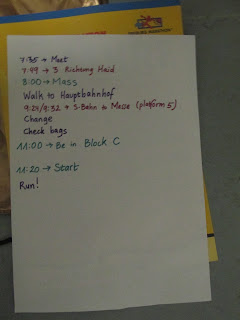 7:35 → Meet
7:49 → 3 Richtung Haid
8:00 → Mass
Walk to Hauptbahnhof
9:24/9:32 → S-Bahn to Messe (platform 5)
Change
Check bags
11:00 → Be in Block C
11:20 → Start
Run!